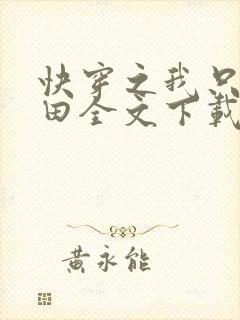 快穿之我只
田全文下载
黄永能